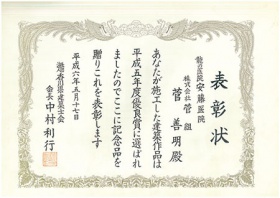 表彰状
龍雲医院 安藤医院
株式会社 菅組
菅 善明殿
あなたが施工した建築作品は
平成五年度優良賞に選ばれ
ましたのでここに記念品を
贈りこれを表彰します
平成六年五月十七日
香川県建築士会
会長 中村利行